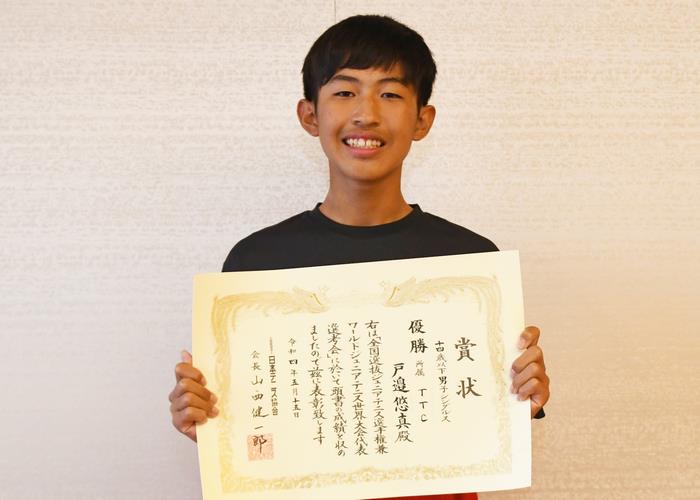 賞状
十四歳以下男子シングルス
優勝
所属 TTC
戸邉悠真殿
右は「全国選抜ジュニアテニス選手権兼
ワールドジュニアテニス世界大会代表
選考会」に於いて頭書の成績を収め
ましたので茲に表彰致します
令和四年五月十五日
会長 山西健一郎